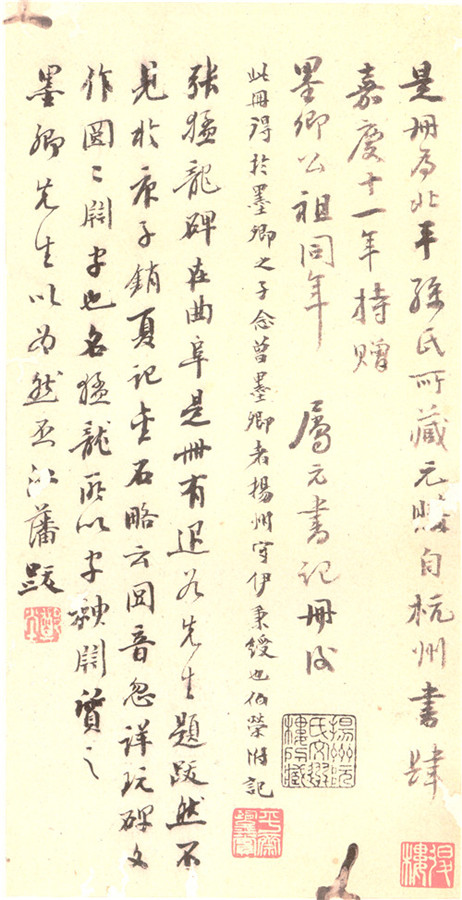 是冊為北平孫氏所藏元購自杭州書肆
嘉慶十一年持贈
墨卿公祖同年　屬元書記冊後
此冊得於墨卿之子念曾墨卿者揚州守伊秉綬也伯榮附記
張猛龍碑在曲阜是冊有退谷先生題跋然不
見於庚子銷夏記金石略云音忽詳玩碑文
作字也名猛龍所以字神質之
墨卿先生以為然否江藩跋
揚州阮氏文選樓所藏